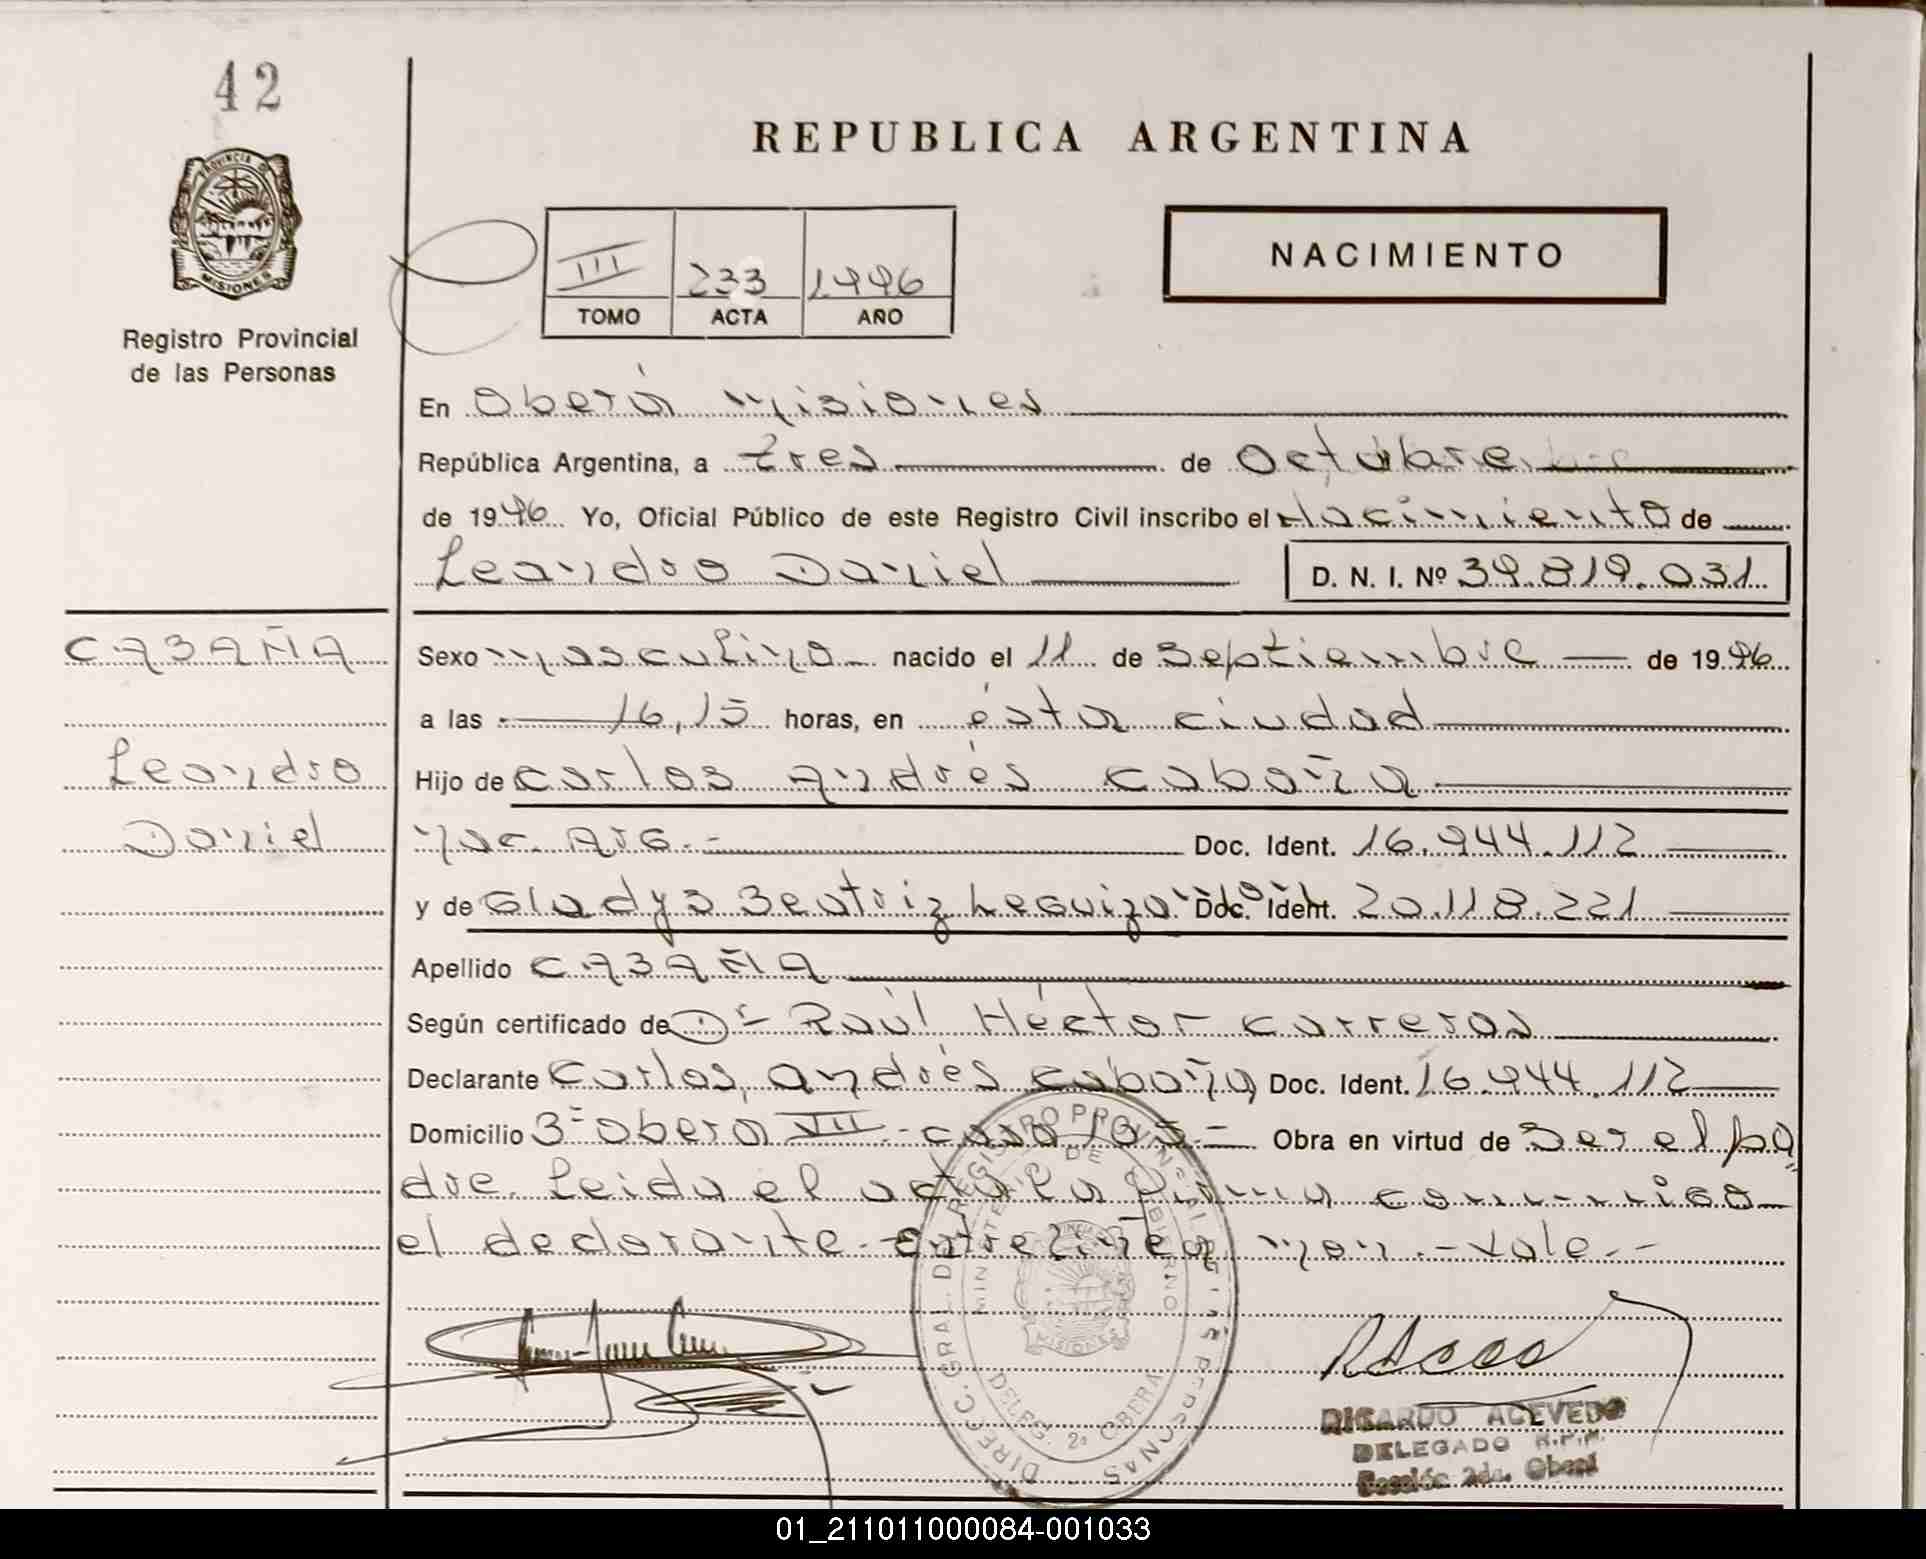 42
REPUBLICA ARGENTINA
PROVINCIA DE
MISIONES
Registro Provincial
de las Personas
III 233 1996
TOMO ACTA AÑO
NACIMIENTO
En Oberá Misiones
República Argentina, a tres de Octubre
de 1996 Yo, Oficial Público de este Registro Civil inscribo el Nacimiento de
Leandro Daniel D. N. I. Nº 39.819.031
CABAÑA
Sexo masculino nacido el 11 de Septiembre de 1996
a las 16,15 horas, en ésta ciudad
Leandro
Hijo de Carlos Andrés Cabaña
Daniel
Nac. Arg.- Doc. Ident. 16.944.112
y de Gladys Beatriz Leguizamón Doc. Ident. 20.118.221
Apellido CABAÑA
Según certificado de Dr Raúl Héctor Carreras
Declarante Carlos Andrés Cabaña Doc. Ident. 16.944.112
Domicilio Bº Oberá VII - casa 105 - Obra en virtud de Ser el pa
dre. Leida el acta la firma conmigo
el declarante. Entrelínea mon.- Vale.-
DIRECC. GRAL. DE REGISTRO PROVINCIAL DE LAS PERSONAS
MINISTERIO DE GOBIERNO
MISIONES
DELEG. 2a OBERA
RICARDO ACEVEDO
DELEGADO R.P.P.
Sección 2da. Oberá
01_211011000084-001033